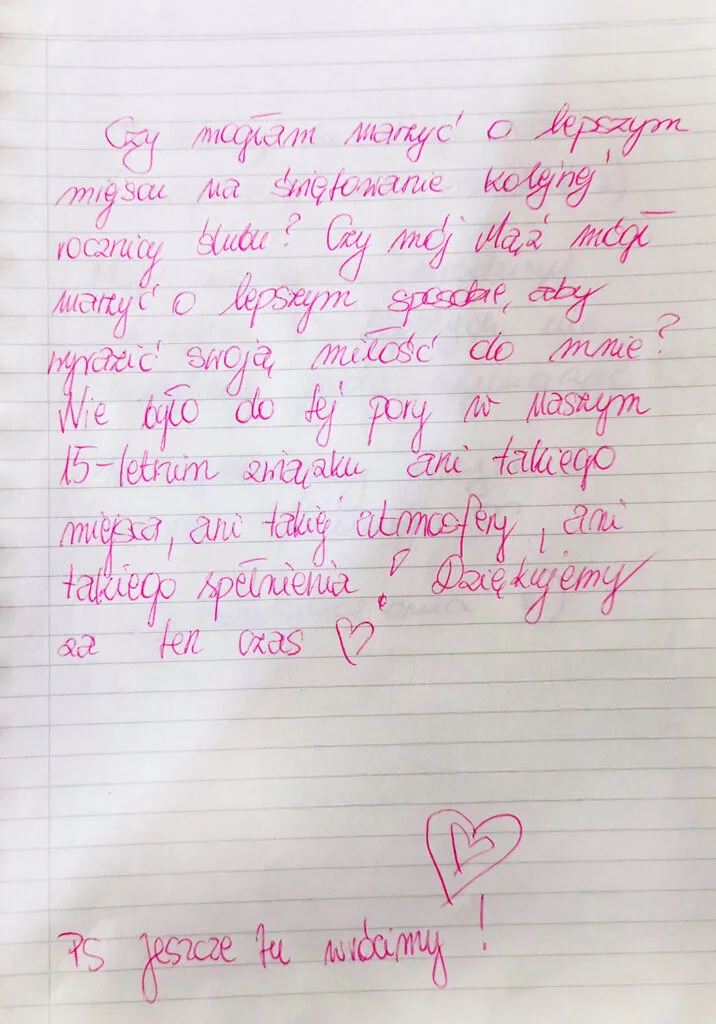 Czy mogłam marzyć o lepszym
miejscu na świętowanie kolejnej
rocznicy ślubu? Czy mój Mąż mógł
marzyć o lepszym sposobie, aby
wyrazić swoją miłość do mnie?
Nie było do tej pory w naszym
15-letnim związku ani takiego
miejsca, ani takiej atmosfery, ani
takiego spełnienia! Dziękujemy
za ten czas ♡
PS jeszcze tu wrócimy!